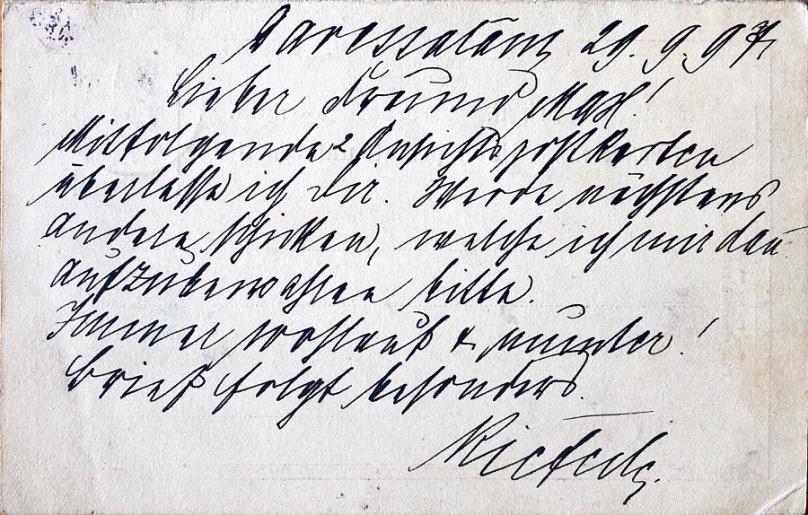 Daressalâm, 29. 9. 97.
Lieber Freund Max!
Mitfolgende 2 Ansichtspostkarten
überlasse ich Dir. Werde nächstens
andere schicken, welche ich mir dan
aufzubewahren bitte.
Immer wohlauf & munter!
Brief folgt besonders.